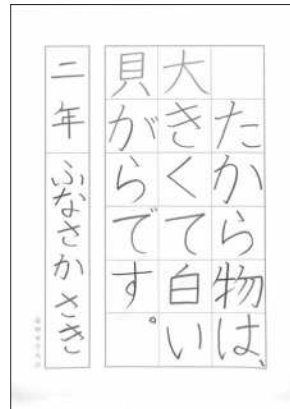 たから物は、
大きくて白い
貝がらです。
二年 ふなさかさき